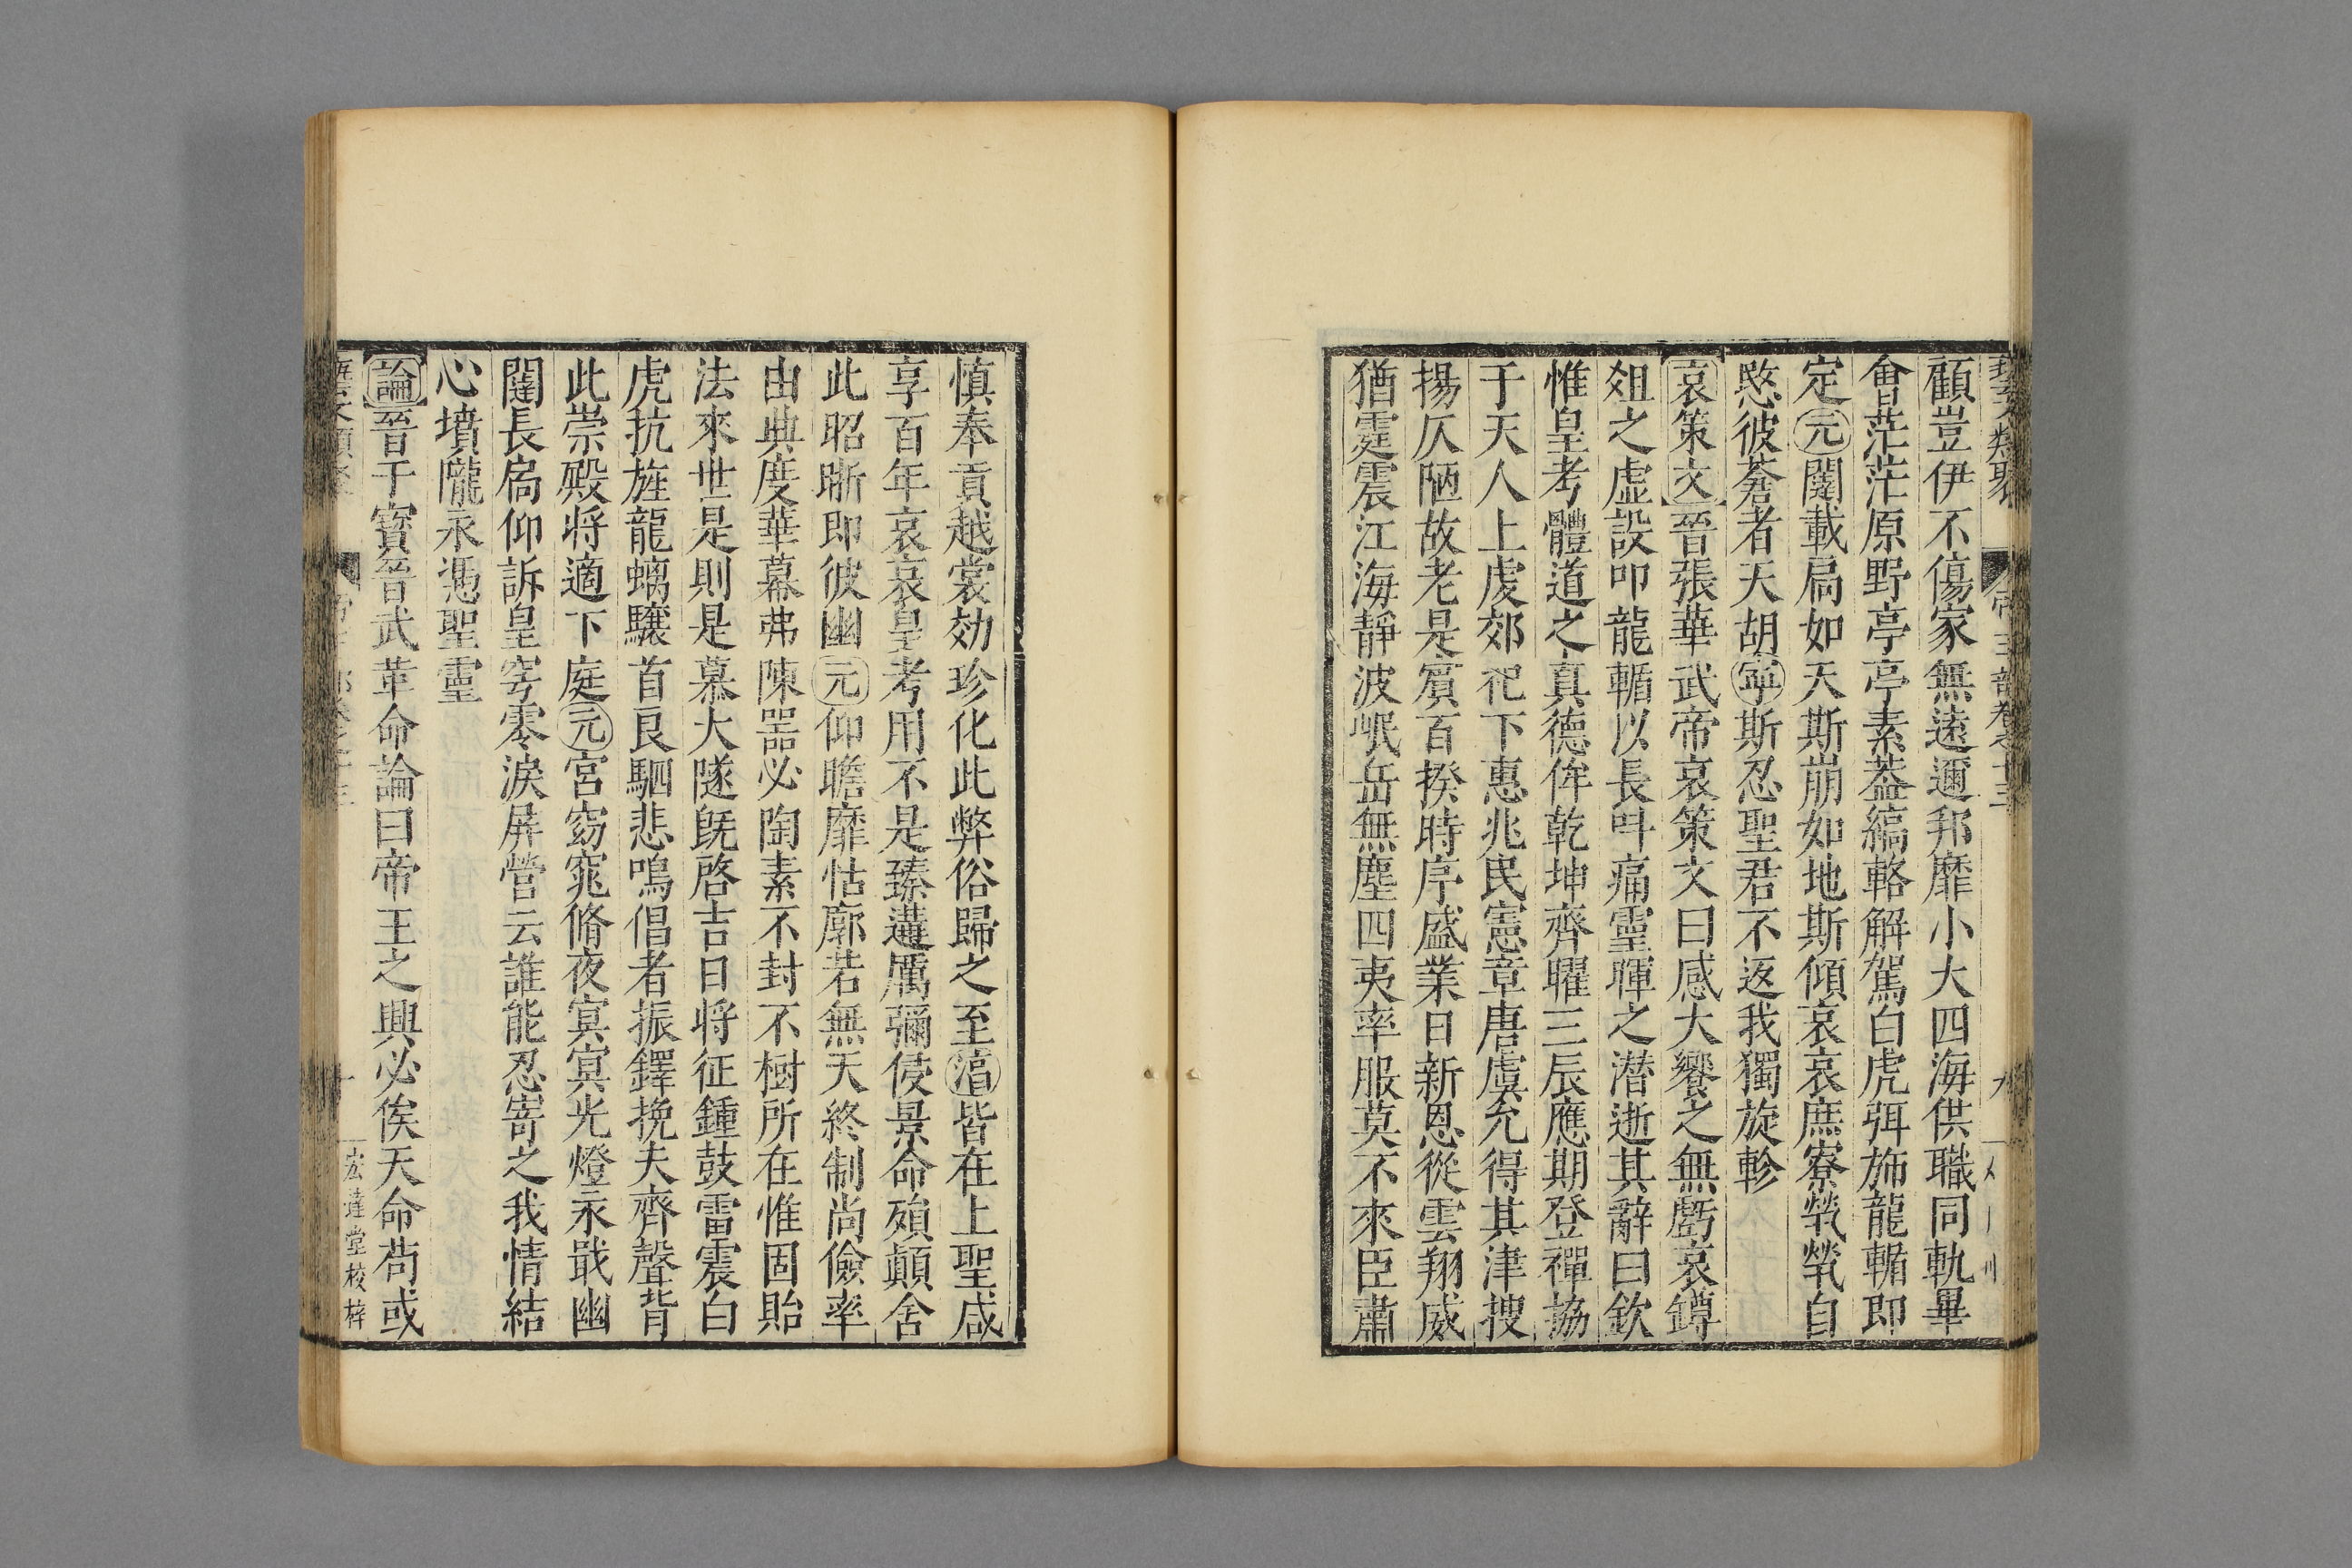 藝文類聚 帝王部卷之十三 九
顧豈伊不傷家無遠邇邦靡小大四海供職同軌畢
會茫茫原野亭亭素蓋縞輅解駕白虎弭斾龍輴即
定元闥載扃如天斯崩如地斯傾哀哀庶寮煢煢自
愍彼蒼者天胡寧斯忍聖君不返我獨旋軫
哀策文晉張華武帝哀策文曰感大饗之無虧哀罇
俎之虛設叩龍輴以長呌痛靈暉之潜逝其辭曰欽
惟皇考體道之真德侔乾坤齊曜三辰應期登禪協
于天人上虔郊祀下惠兆民憲章唐虞允得其津搜
揚仄陋故老是賔百揆時序盛業日新恩從雲翔威
猶霆震江海靜波岷岳無塵四夷率服莫不來臣肅
慎奉貢越裳効珍化此弊俗歸之至湻皆在上聖咸
享百年哀哀皇考用不是臻遘厲彌侵景命殞顛舍
此昭晣即彼幽元仰瞻靡怙廓若無天終制尚儉率
由典度華幕弗陳器必陶素不封不樹所在惟固貽
法來世是則是慕大隧既啓吉日将征鍾鼓雷震白
虎抗旌龍螭驤首良駟悲鳴倡者振鐸挽夫齊聲背
此崇殿将適下庭元宮窈窕脩夜寘寘光燈永戢幽
闥長扃仰訴皇穹零淚屏營云誰能忍寄之我情結
心墳隴永憑聖靈
論晉干寶晉武革命論曰帝王之興必俟天命茍或
藝文類聚 帝王部卷之十三 十 宏達堂校梓